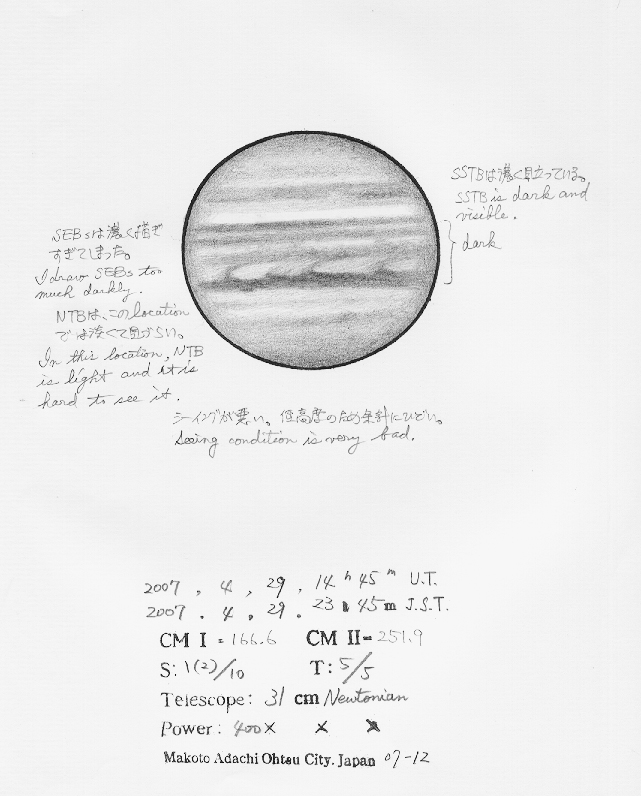 SSTBは濃く目立っている。
SSTB is dark and
visible.
dark
SEBsは濃く描き
すぎてしまった。
I draw SEBs too
much darkly.
NTBは、このlocation
では淡くて見づらい。
In this location, NTB
is light and it is
hard to see it.
シーイングが悪い。低高度のため条件にひどい。
Seeing condition is very bad.
2007 . 4 , 29 . 14 h 45 m U.T.
2007 . 4 , 29 . 23 h 45 m J.S.T.
CM I = 166.6 CM II = 251.9
S: 1(2)/10 T: 5/5
Telescope: 31 cm Newtonian
Power: 400X X X
Makoto Adachi Ohtsu City. Japan 07-12